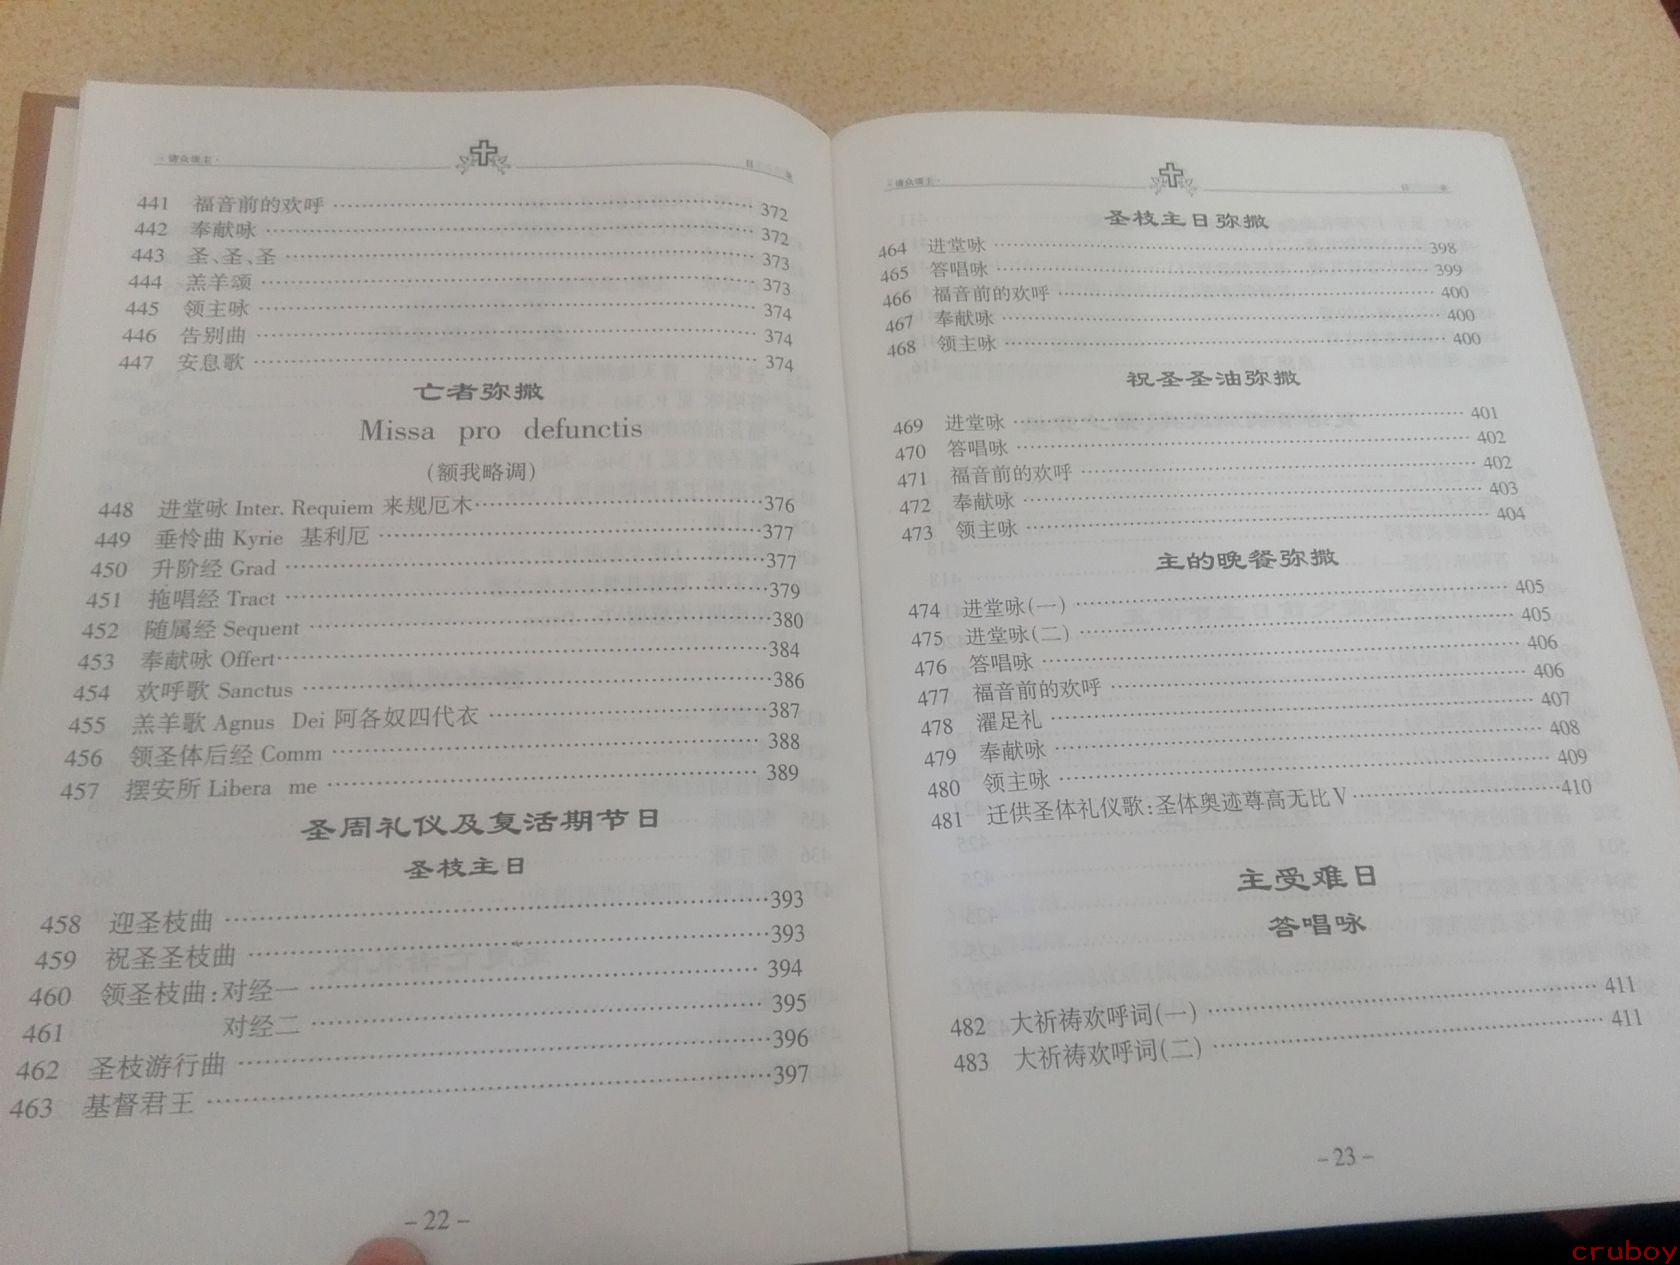 ·请众颂主·
目 录
441 福音前的欢呼 372
442 奉献咏 372
443 圣、圣、圣 373
444 羔羊颂 373
445 领主咏 374
446 告别曲 374
447 安息歌 374
亡者弥撒
Missa pro defunctis
(额我略调)
448 进堂咏 Inter. Requiem 来规厄木 376
449 垂怜曲 Kyrie 基利厄 377
450 升阶经 Grad 377
451 拖唱经 Tract 379
452 随属经 Sequent 380
453 奉献咏 Offert 384
454 欢呼歌 Sanctus 386
455 羔羊歌 Agnus Dei 阿各奴四代衣 387
456 领圣体后经 Comm 388
457 摆安所 Libera me 389
圣周礼仪及复活期节日
圣枝主日
458 迎圣枝曲 393
459 祝圣圣枝曲 393
460 领圣枝曲:对经一 394
461 对经二 395
462 圣枝游行曲 396
463 基督君王 397
-22-
·请众颂主·
目 录
圣枝主日弥撒
464 进堂咏 398
465 答唱咏 399
466 福音前的欢呼 400
467 奉献咏 400
468 领主咏 400
祝圣圣油弥撒
469 进堂咏 401
470 答唱咏 402
471 福音前的欢呼 402
472 奉献咏 403
473 领主咏 404
主的晚餐弥撒
474 进堂咏(一) 405
475 进堂咏(二) 405
476 答唱咏 406
477 福音前的欢呼 406
478 濯足礼 407
479 奉献咏 408
480 领主咏 409
481 迁供圣体礼仪歌:圣体奥迹尊高无比V 410
主受难日
答唱咏
482 大祈祷欢呼词(一) 411
483 大祈祷欢呼词(二) 411
-23-
cruboy